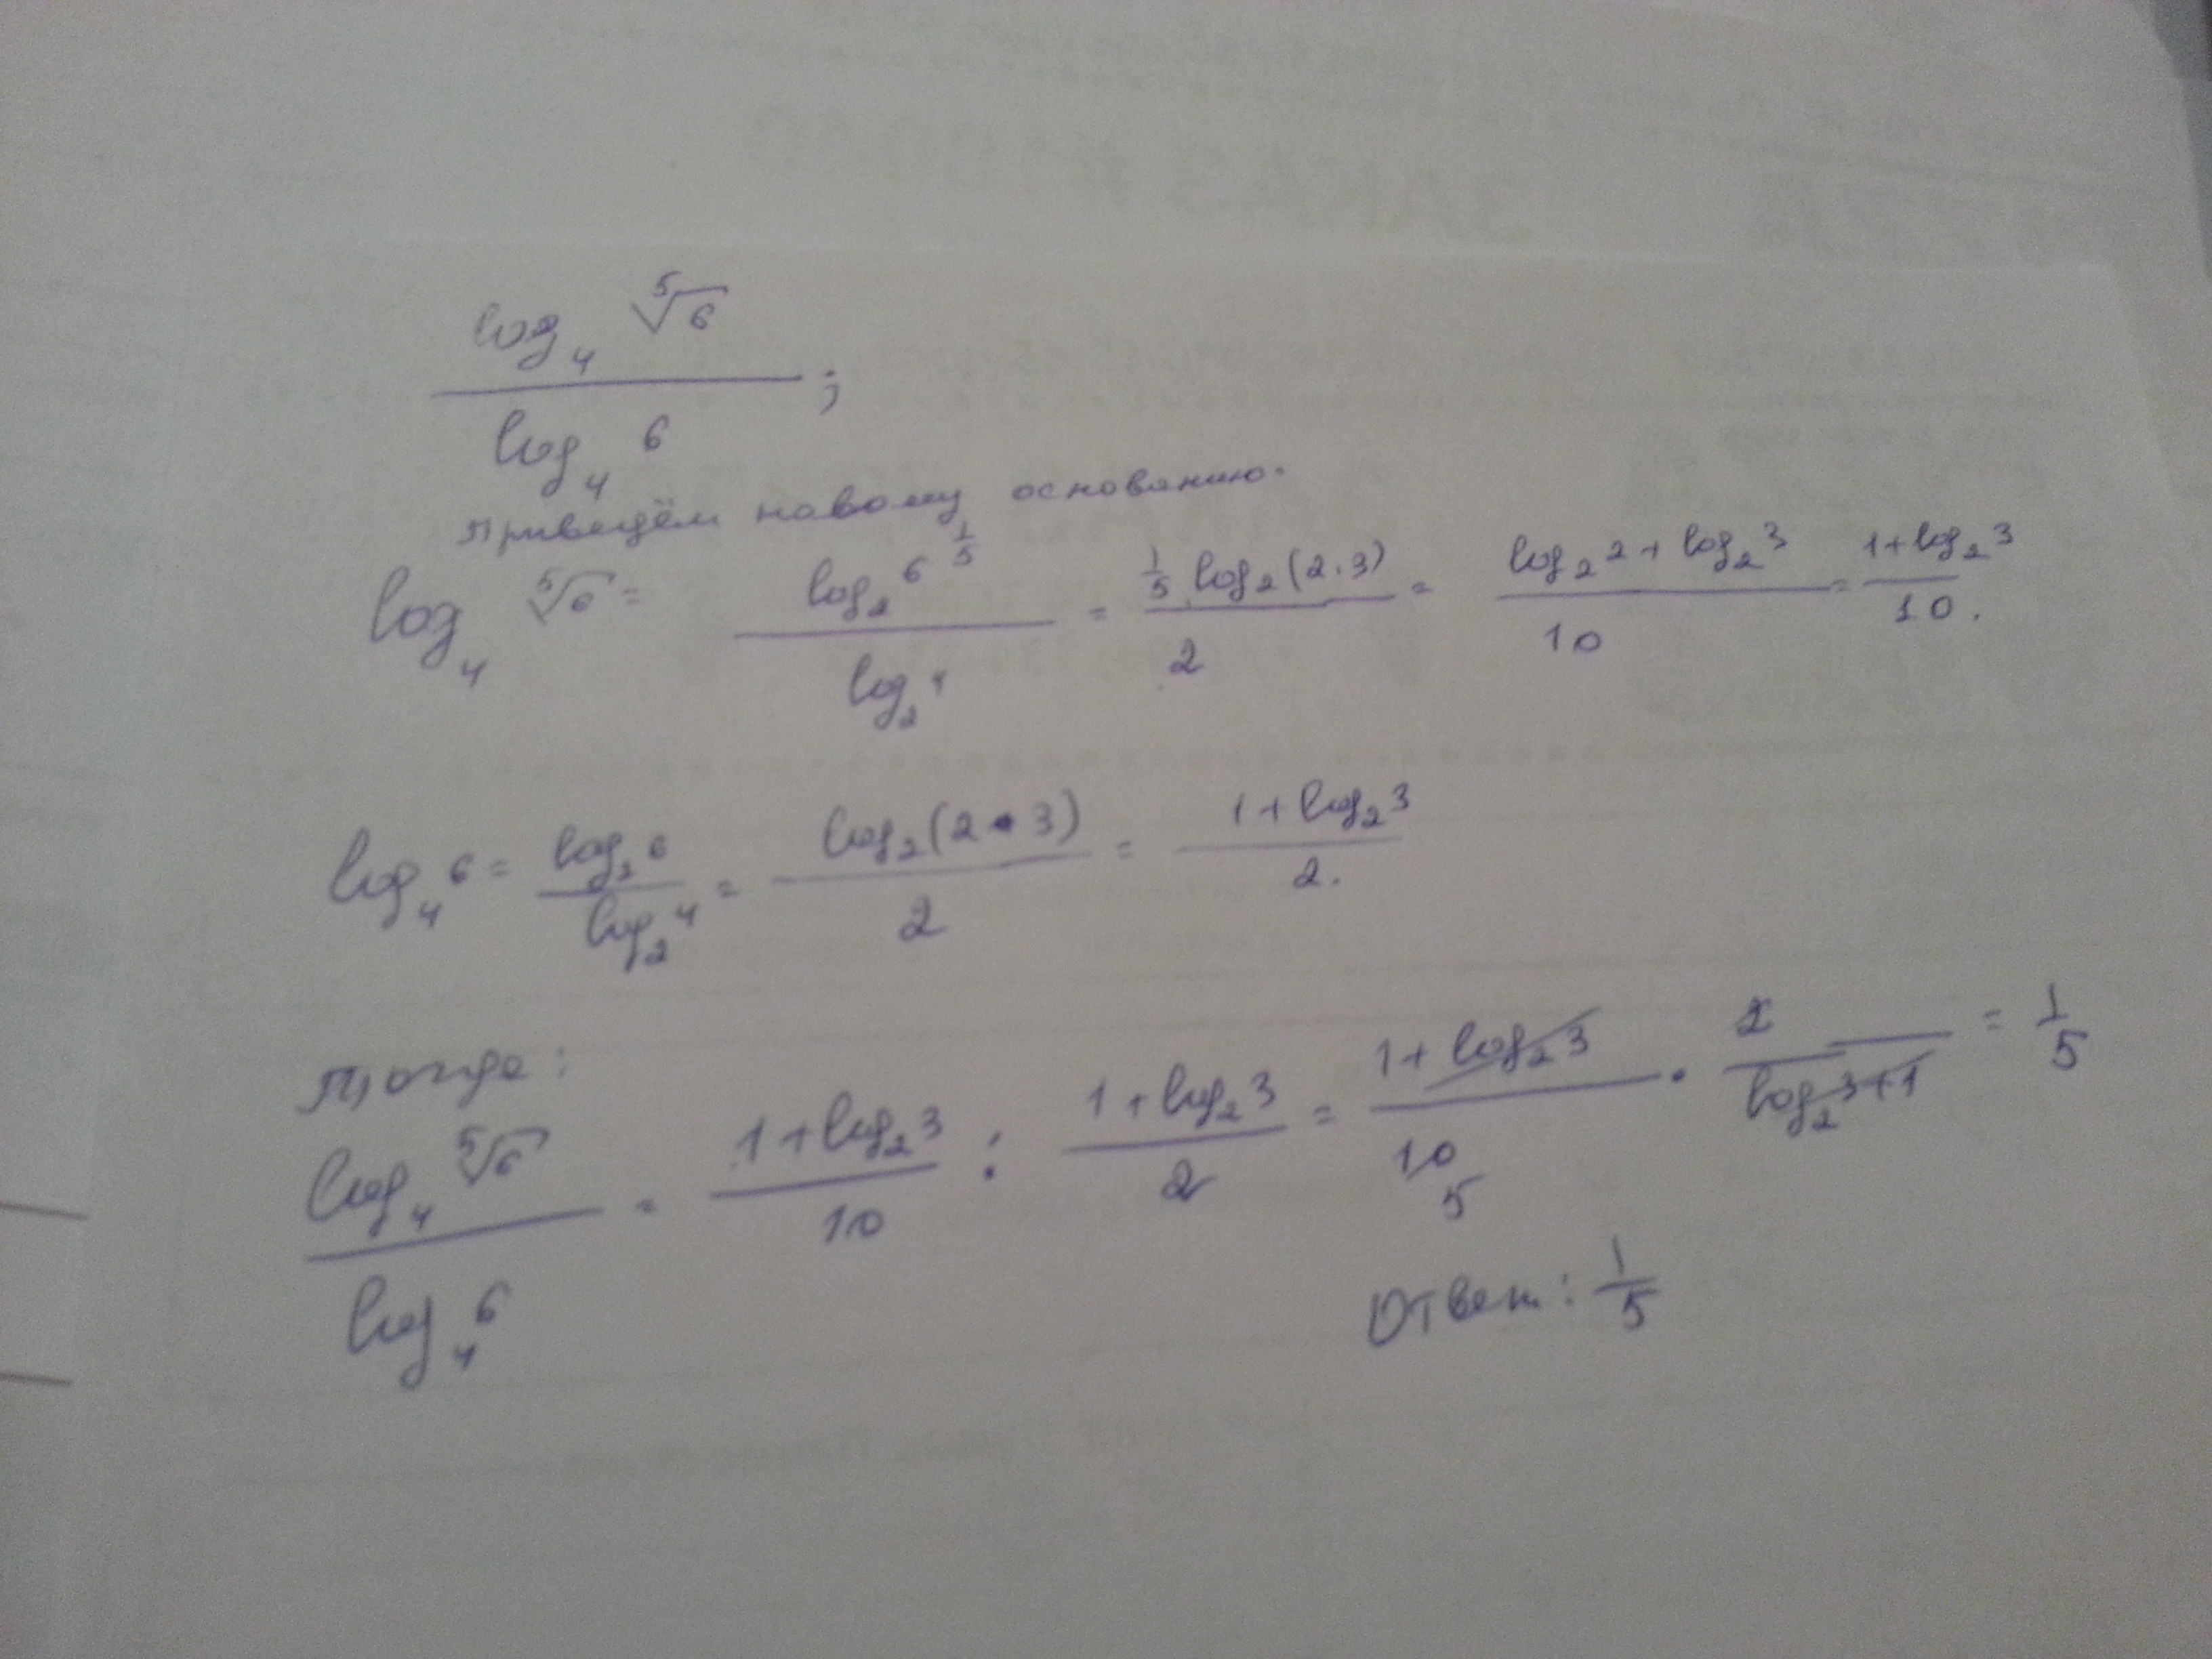 log₄ ⁵√6
log₄ 6 ;
Приведём новому основанию.
log₄ ⁵√6 = log₂ 6^(1/5) / log₂ 4 = 1/5 log₂(2·3) / 2 = log₂ 2 + log₂ 3 / 10 = 1+log₂ 3 / 10.
log₄ 6 = log₂ 6 / log₂ 4 = log₂(2·3) / 2 = 1+log₂ 3 / 2.
Тогда:
log₄ ⁵√6 / log₄ 6 = 1+log₂ 3 / 10 : 1+log₂ 3 / 2 = 1+log₂ 3 / 10 5 · 2 / log₂ 3+1 = 1/5
Ответ: 1/5